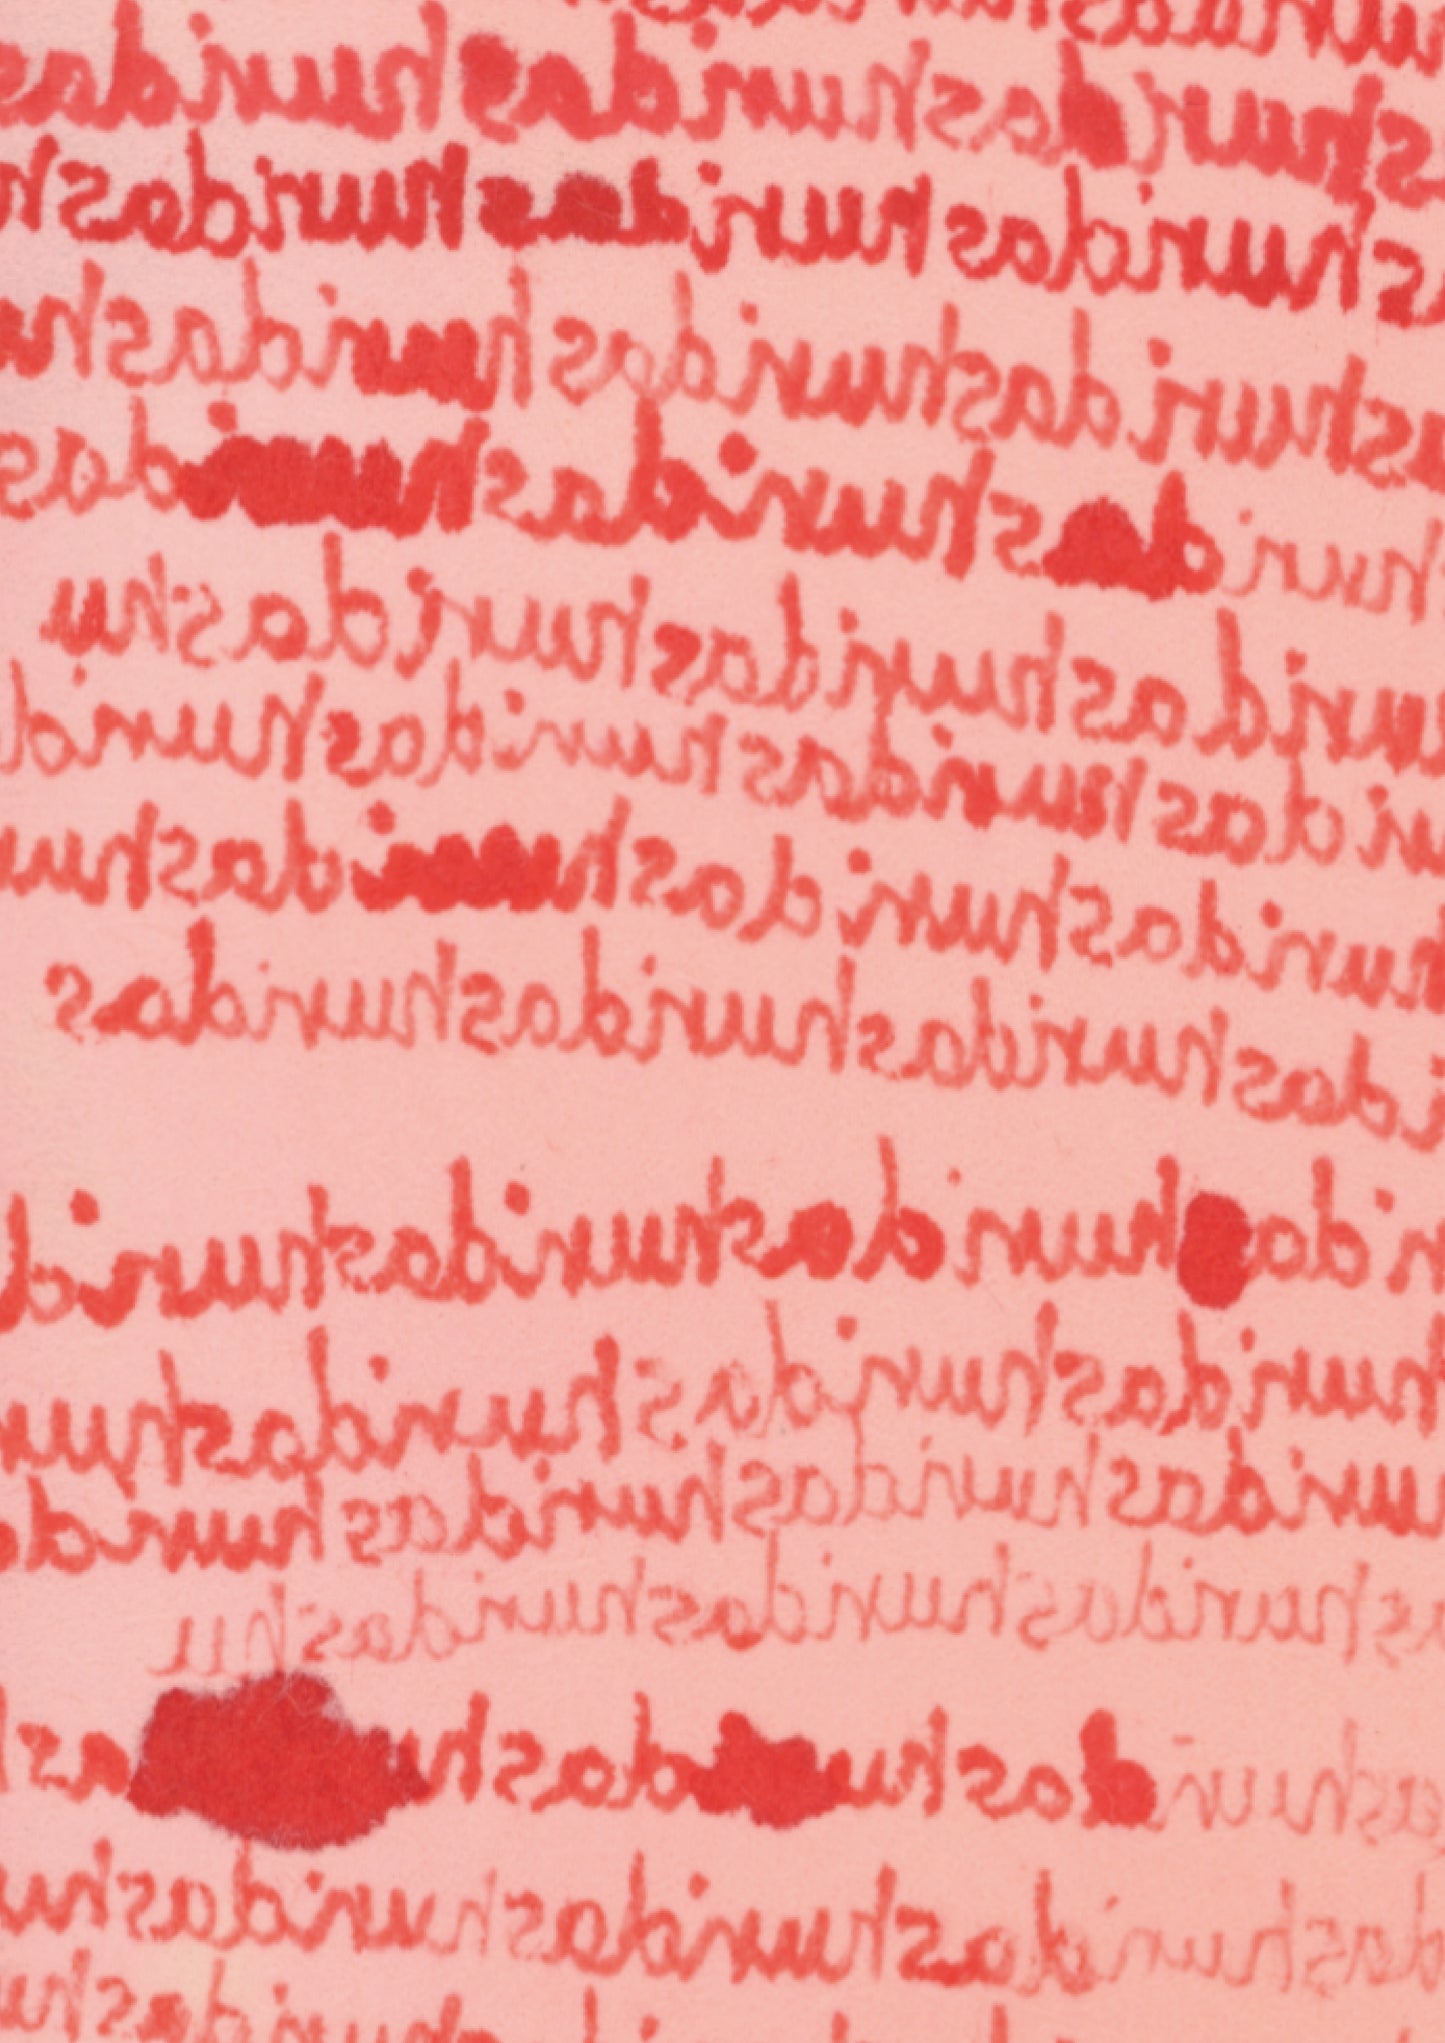 huridashuridas
shuridashuridashuridas
shuridashuridashuridash
ashuridashuridashuridashu
huridashuridashuridas
uridashuridashuridashu
uridashuridashuridashurid
huridashuridashuridashuri
idashuridashuridashuridas
ridashuridashuridashurid
huridashuridashuridashur
uridashuridashuridashurida
ashuridashuridashuridashu
ashuridashuridashuridas
dashuridashuridashuridashu
huridashu